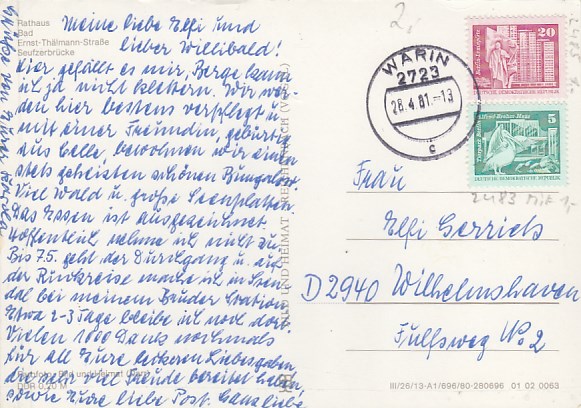 Rathaus
Bad
Ernst-Thälmann-Straße
Seufzerbrücke
Meine liebe Elfi und
lieber Willibald!
Hier gefällt es mir, Berge kann
ich ja nicht klettern. Wir wer-
den hier bestens verpflegt u.
mit einer Freundin, gebürtig
aus Celle, bewohnen wir einen
stets geheizten schönen Bungalow!
Viel Wald u. große Seenplatten!
Das Essen ist ausgezeichnet.
Hoffentlich nehme ich nicht zu.
Bis 7.5. geht der Durchgang u. auf
der Rückreise mache ich in Sten-
dal bei meinem Bruder Station
Etwa 2-3 Tage bleibe ich noch dort
Vielen 1000 Dank nochmals
für all Eure leckeren Liebesgaben,
die sehr viel Freude bereitet haben,
sowie Eure liebe Post. Ganz liebe
Grüße von Eurer
DDR 0,20 M
BILD UND HEIMAT
2,
WARIN
2723
28.4.81.-13
c
20
DEUTSCHE DEMOKRATISCHE REPUBLIK
5
Tierpark Berlin Alfred-Brehm-Haus
DEUTSCHE DEMOKRATISCHE REPUBLIK
2483
Frau
Elfi Gerrich
D 2940 Wilhelmshaven
No 2
III/26/13-A1/696/80-280696 01 02 0063